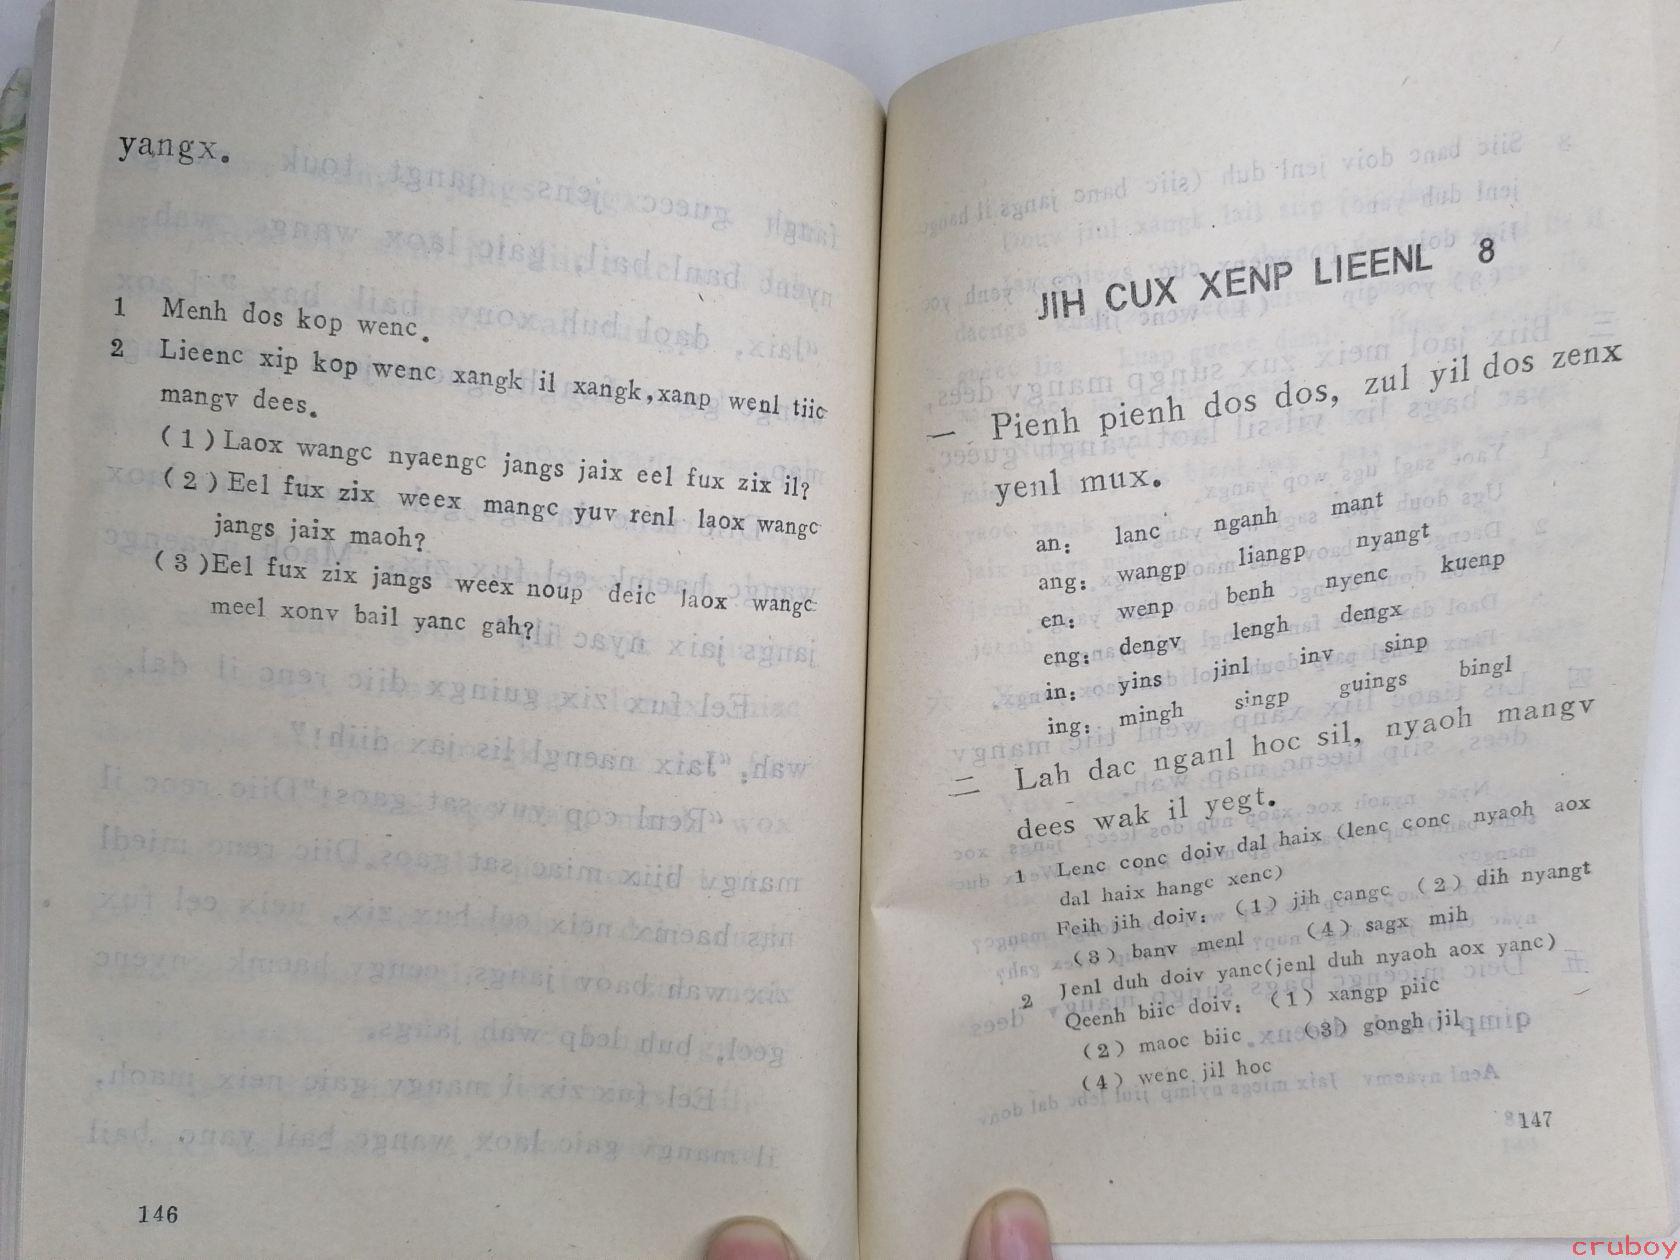 yangx.
1 Menh dos kop wenc.
2 Lieenc xip kop wenc xangk il xangk, xanp wenl tiic
mangv dees.
(1) Laox wangc nyaengc jangs jaix eel fux zix il?
(2) Eel fux zix weex mangc yuv renl laox wangc
jangs jaix maoh?
(3) Eel fux zix jangs weex noup deic laox wangc
meel xonv bail yanc gah?
146
JIH CUX XENP LIEENL 8
一 Pienh pienh dos dos, zul yil dos zenx
yenl mux.
an: lanc nganh mant
ang: wangp liangp nyangt
en: wenp benh nyenc kuenp
eng: dengv lengh dengx
in: yins jinl inv sinp
ing: mingh singp guings bingl
二 Lah dac nganl hoc sil, nyaoh mangv
dees wak il yegt.
1 Lenc conc doiv dal haix (lenc conc nyaoh aox
dal haix hangc xenc)
Feih jih doiv: (1) jih cangc (2) dih nyangt
(3) banv menl (4) sagx mih
2 Jenl duh doiv yanc (jenl duh nyaoh aox yanc)
Qeenh biic doiv: (1) xangp piic
(2) maoc biic (3) gongh jil
(4) wenc jil hoc
147
cruboy